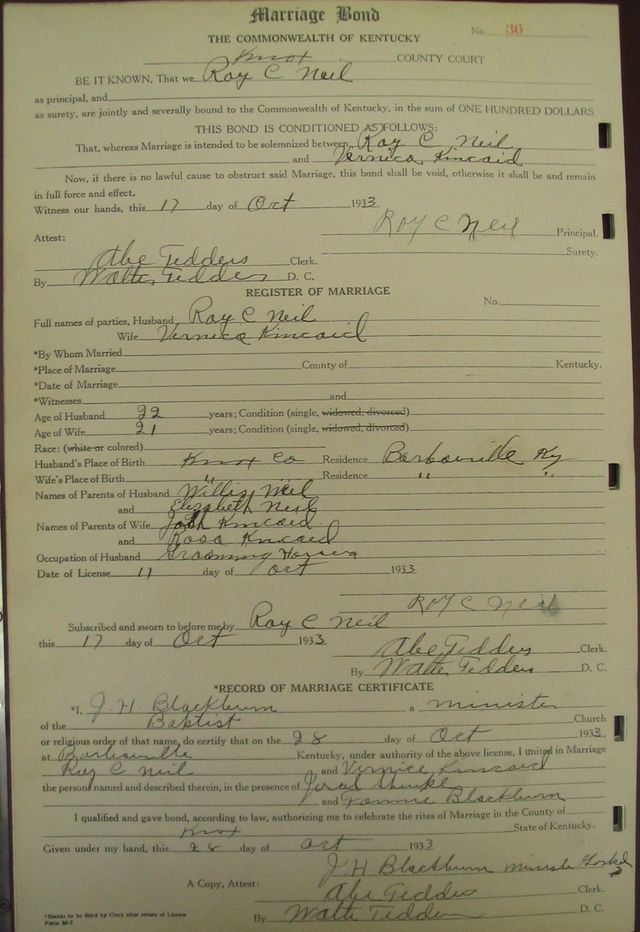 Marriage Bond
No. 36
THE COMMONWEALTH OF KENTUCKY
Knox COUNTY COURT
BE IT KNOWN, That we Roy C Neil
as principal, and
as surety, are jointly and severally bound to the Commonwealth of Kentucky, in the sum of ONE HUNDRED DOLLARS
THIS BOND IS CONDITIONED AS FOLLOWS:
That, whereas Marriage is intended to be solemnized between Roy C Neil
and Vernica Kincaid
Now, if there is no lawful cause to obstruct said Marriage, this bond shall be void, otherwise it shall be and remain
in full force and effect.
Witness our hands, this 17 day of Oct 1933
Roy C Neil Principal.
Attest:
Surety.
Abe Tedders Clerk.
By Walter Tedders D. C.
REGISTER OF MARRIAGE
No.
Full names of parties, Husband Roy C Neil
Wife Vernica Kincaid
*By Whom Married
*Place of Marriage County of Kentucky.
*Date of Marriage
*Witnesses and
Age of Husband 22 years; Condition (single, widowed, divorced)
Age of Wife 21 years; Condition (single, widowed, divorced)
Race: (white or colored)
Husband's Place of Birth Knox Co Residence Barbourville Ky
Wife's Place of Birth " Residence " "
Names of Parents of Husband Willis Neil
and Elizabeth Neil
Names of Parents of Wife Josh Kincaid
and Rosa Kincaid
Occupation of Husband Grooming Horses
Date of License 17 day of Oct 1933
Roy C Neil
Subscribed and sworn to before me by Roy C Neil
this 17 day of Oct 1933
Abe Tedders Clerk.
By Walter Tedders D. C.
*RECORD OF MARRIAGE CERTIFICATE
*I, J H Blackburn a minister
of the Baptist Church
or religious order of that name, do certify that on the 28 day of Oct 1933.
at Barbourville Kentucky, under authority of the above license, I united in Marriage
Roy C Neil and Vernica Kincaid
the persons named and described therein, in the presence of
and Fannie Blackburn
I qualified and gave bond, according to law, authorizing me to celebrate the rites of Marriage in the County of
Knox State of Kentucky.
Given under my hand, this 28 day of Oct 1933
J H Blackburn Minister Gospel
A Copy, Attest: Abe Tedders Clerk.
By Walter Tedders D. C.
*Blanks to be filled by Clerk after return of License
Form M-7